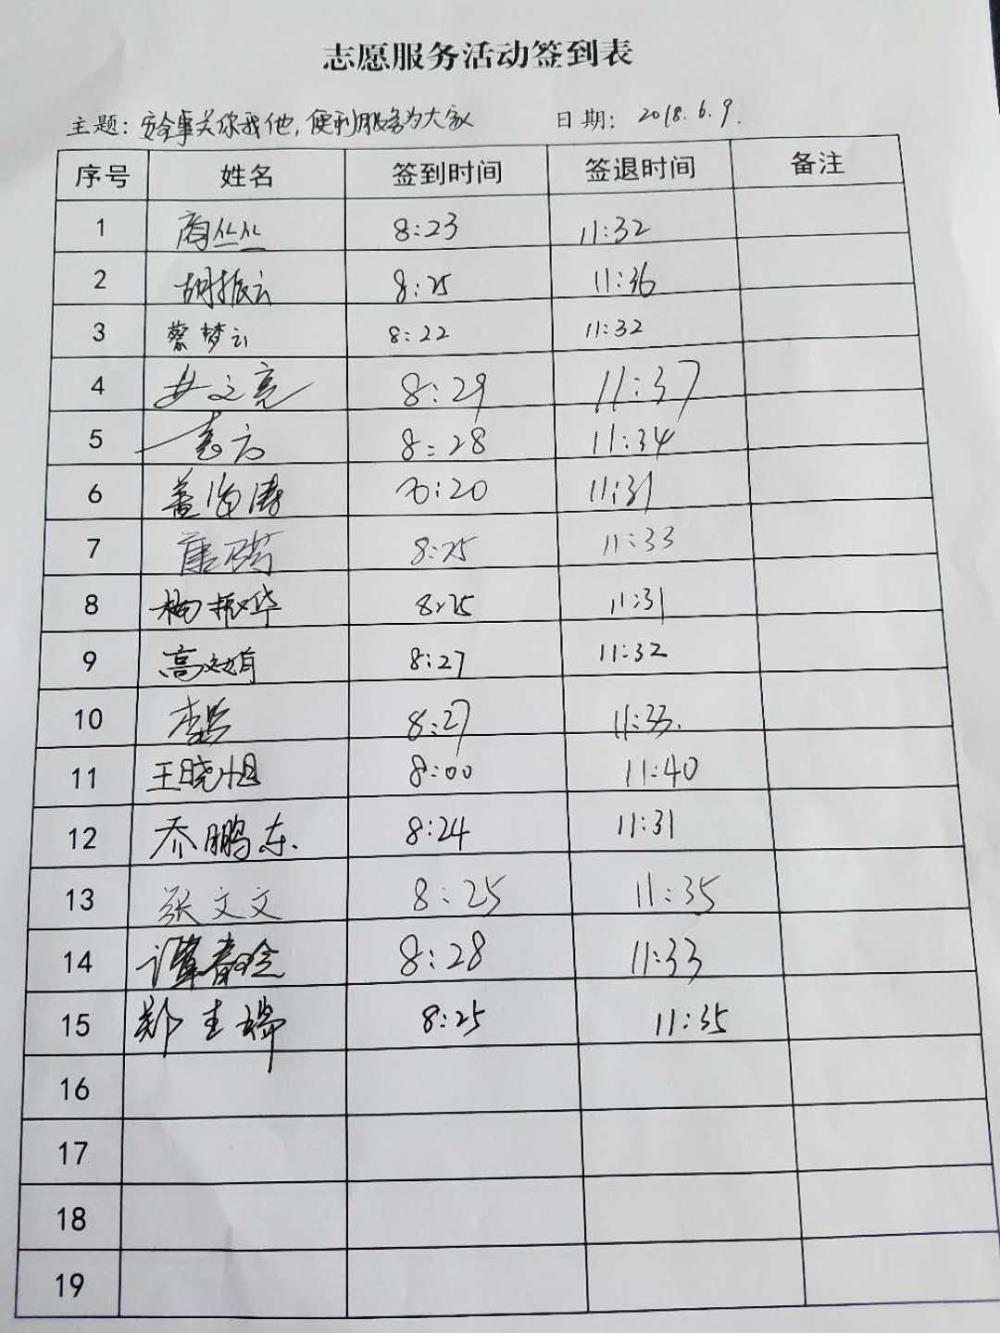 志愿服务活动签到表
主题：安全事关你我他，便利服务为大家 日期：2018.6.9.
序号 姓名 签到时间 签退时间 备注
1 商丛丛 8:23 11:32
2 胡振云 8:25 11:36
3 蔡梦云 8:22 11:32
4 文亮 8:29 11:37
5 8:28 11:34
6 :20 11:31
7 8:25 11:33
8 杨振华 8:25 11:31
9 高 8:27 11:32
10 李 8:27 11:33.
11 王晓旭 8:00 11:40
12 乔鹏东. 8:24 11:31
13 张文文 8:25 11:35
14 谭春 8:28 11:33
15 郑圭瑞 8:25 11:35
16
17
18
19